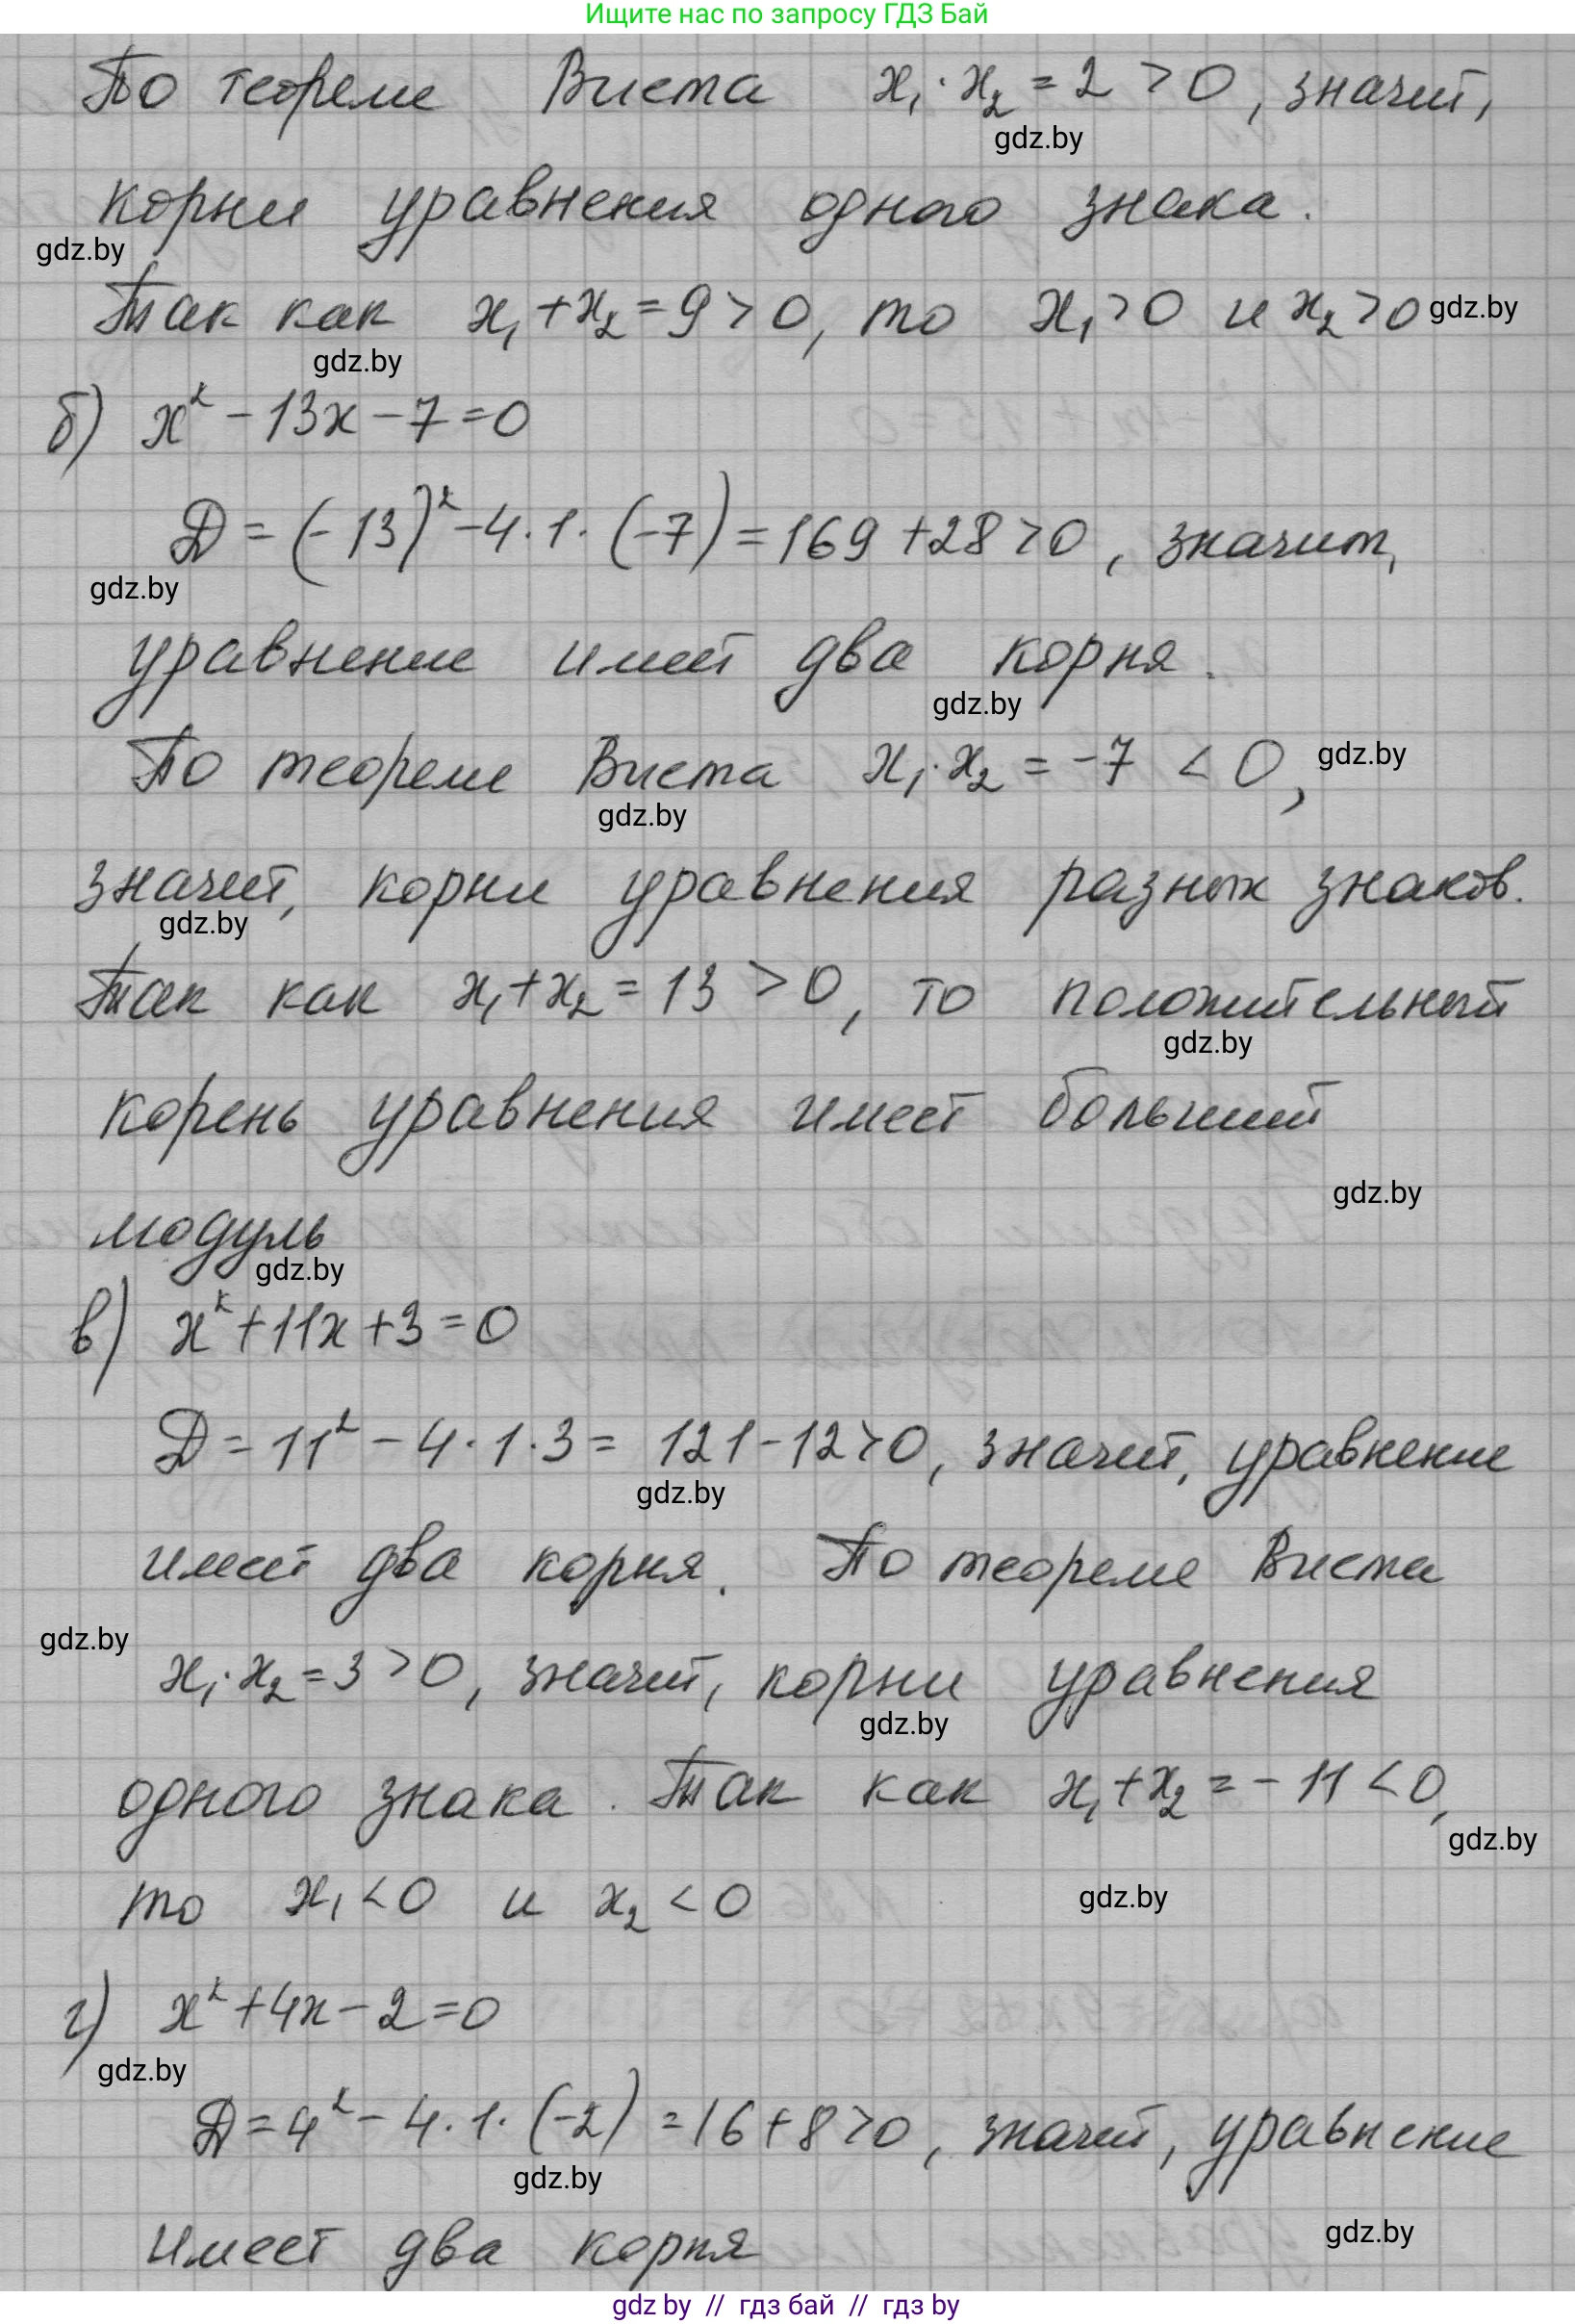 Ищите нас по запросу ГДЗ Бай
По теореме Виета x₁·x₂ = 2 > 0, значит,
gdz.by
корни уравнения одного знака.
gdz.by
Так как x₁+x₂=9>0, то x₁>0 и x₂>0 gdz.by
gdz.by
б) x²-13x-7=0
D=(-13)²-4·1·(-7)=169+28>0, значит,
gdz.by
уравнение имеет два корня.
gdz.by
По теореме Виета x₁·x₂=-7<0, gdz.by
gdz.by
значит, корни уравнения разных знаков.
gdz.by
Так как x₁+x₂=13>0, то положительный
gdz.by
корень уравнения имеет больший
gdz.by
модуль
gdz.by
в) x²+11x+3=0
D=11²-4·1·3=121-12>0, значит, уравнение
gdz.by
имеет два корня. По теореме Виета
gdz.by
x₁·x₂=3>0, значит, корни уравнения
gdz.by
одного знака. Так как x₁+x₂=-11<0,
gdz.by
то x₁<0 и x₂<0 gdz.by
г) x²+4x-2=0
gdz.by
D=4²-4·1·(-2)=16+8>0, значит, уравнение
gdz.by
имеет два корня gdz.by
gdz by // гдз бай // гдз by